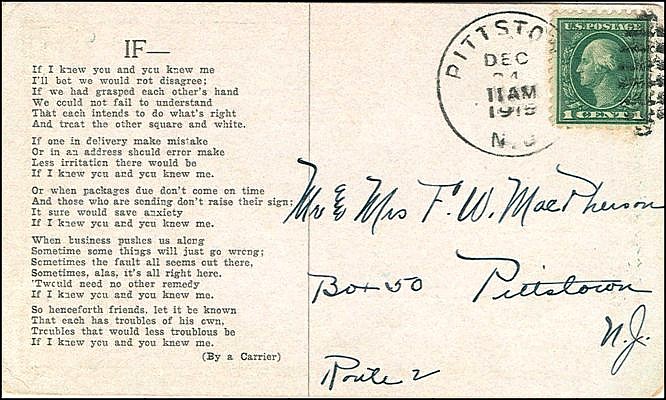 IF—
If I knew you and you knew me
I'll bet we would not disagree;
If we had grasped each other's hand
We could not fail to understand
That each intends to do what's right
And treat the other square and white.
If one in delivery make mistake
Or in an address should error make
Less irritation there would be
If I knew you and you knew me.
Or when packages due don't come on time
And those who are sending don't raise their sign;
It sure would save anxiety
If I knew you and you knew me.
When business pushes us along
Sometime some things will just go wrong;
Sometimes the fault all seems out there,
Sometimes, alas, it's all right here.
'Twould need no other remedy
If I knew you and you knew me.
So henceforth friends, let it be known
That each has troubles of his own,
Troubles that would less troublous be
If I knew you and you knew me.
(By a Carrier)
PITTSTO
DEC
24
11 AM
1915
N.J
U.S. POSTAGE
1 CENT 1
Mr & Mrs F. W. MacPherson
Box 50 Pittstown
N.J.
Route 2